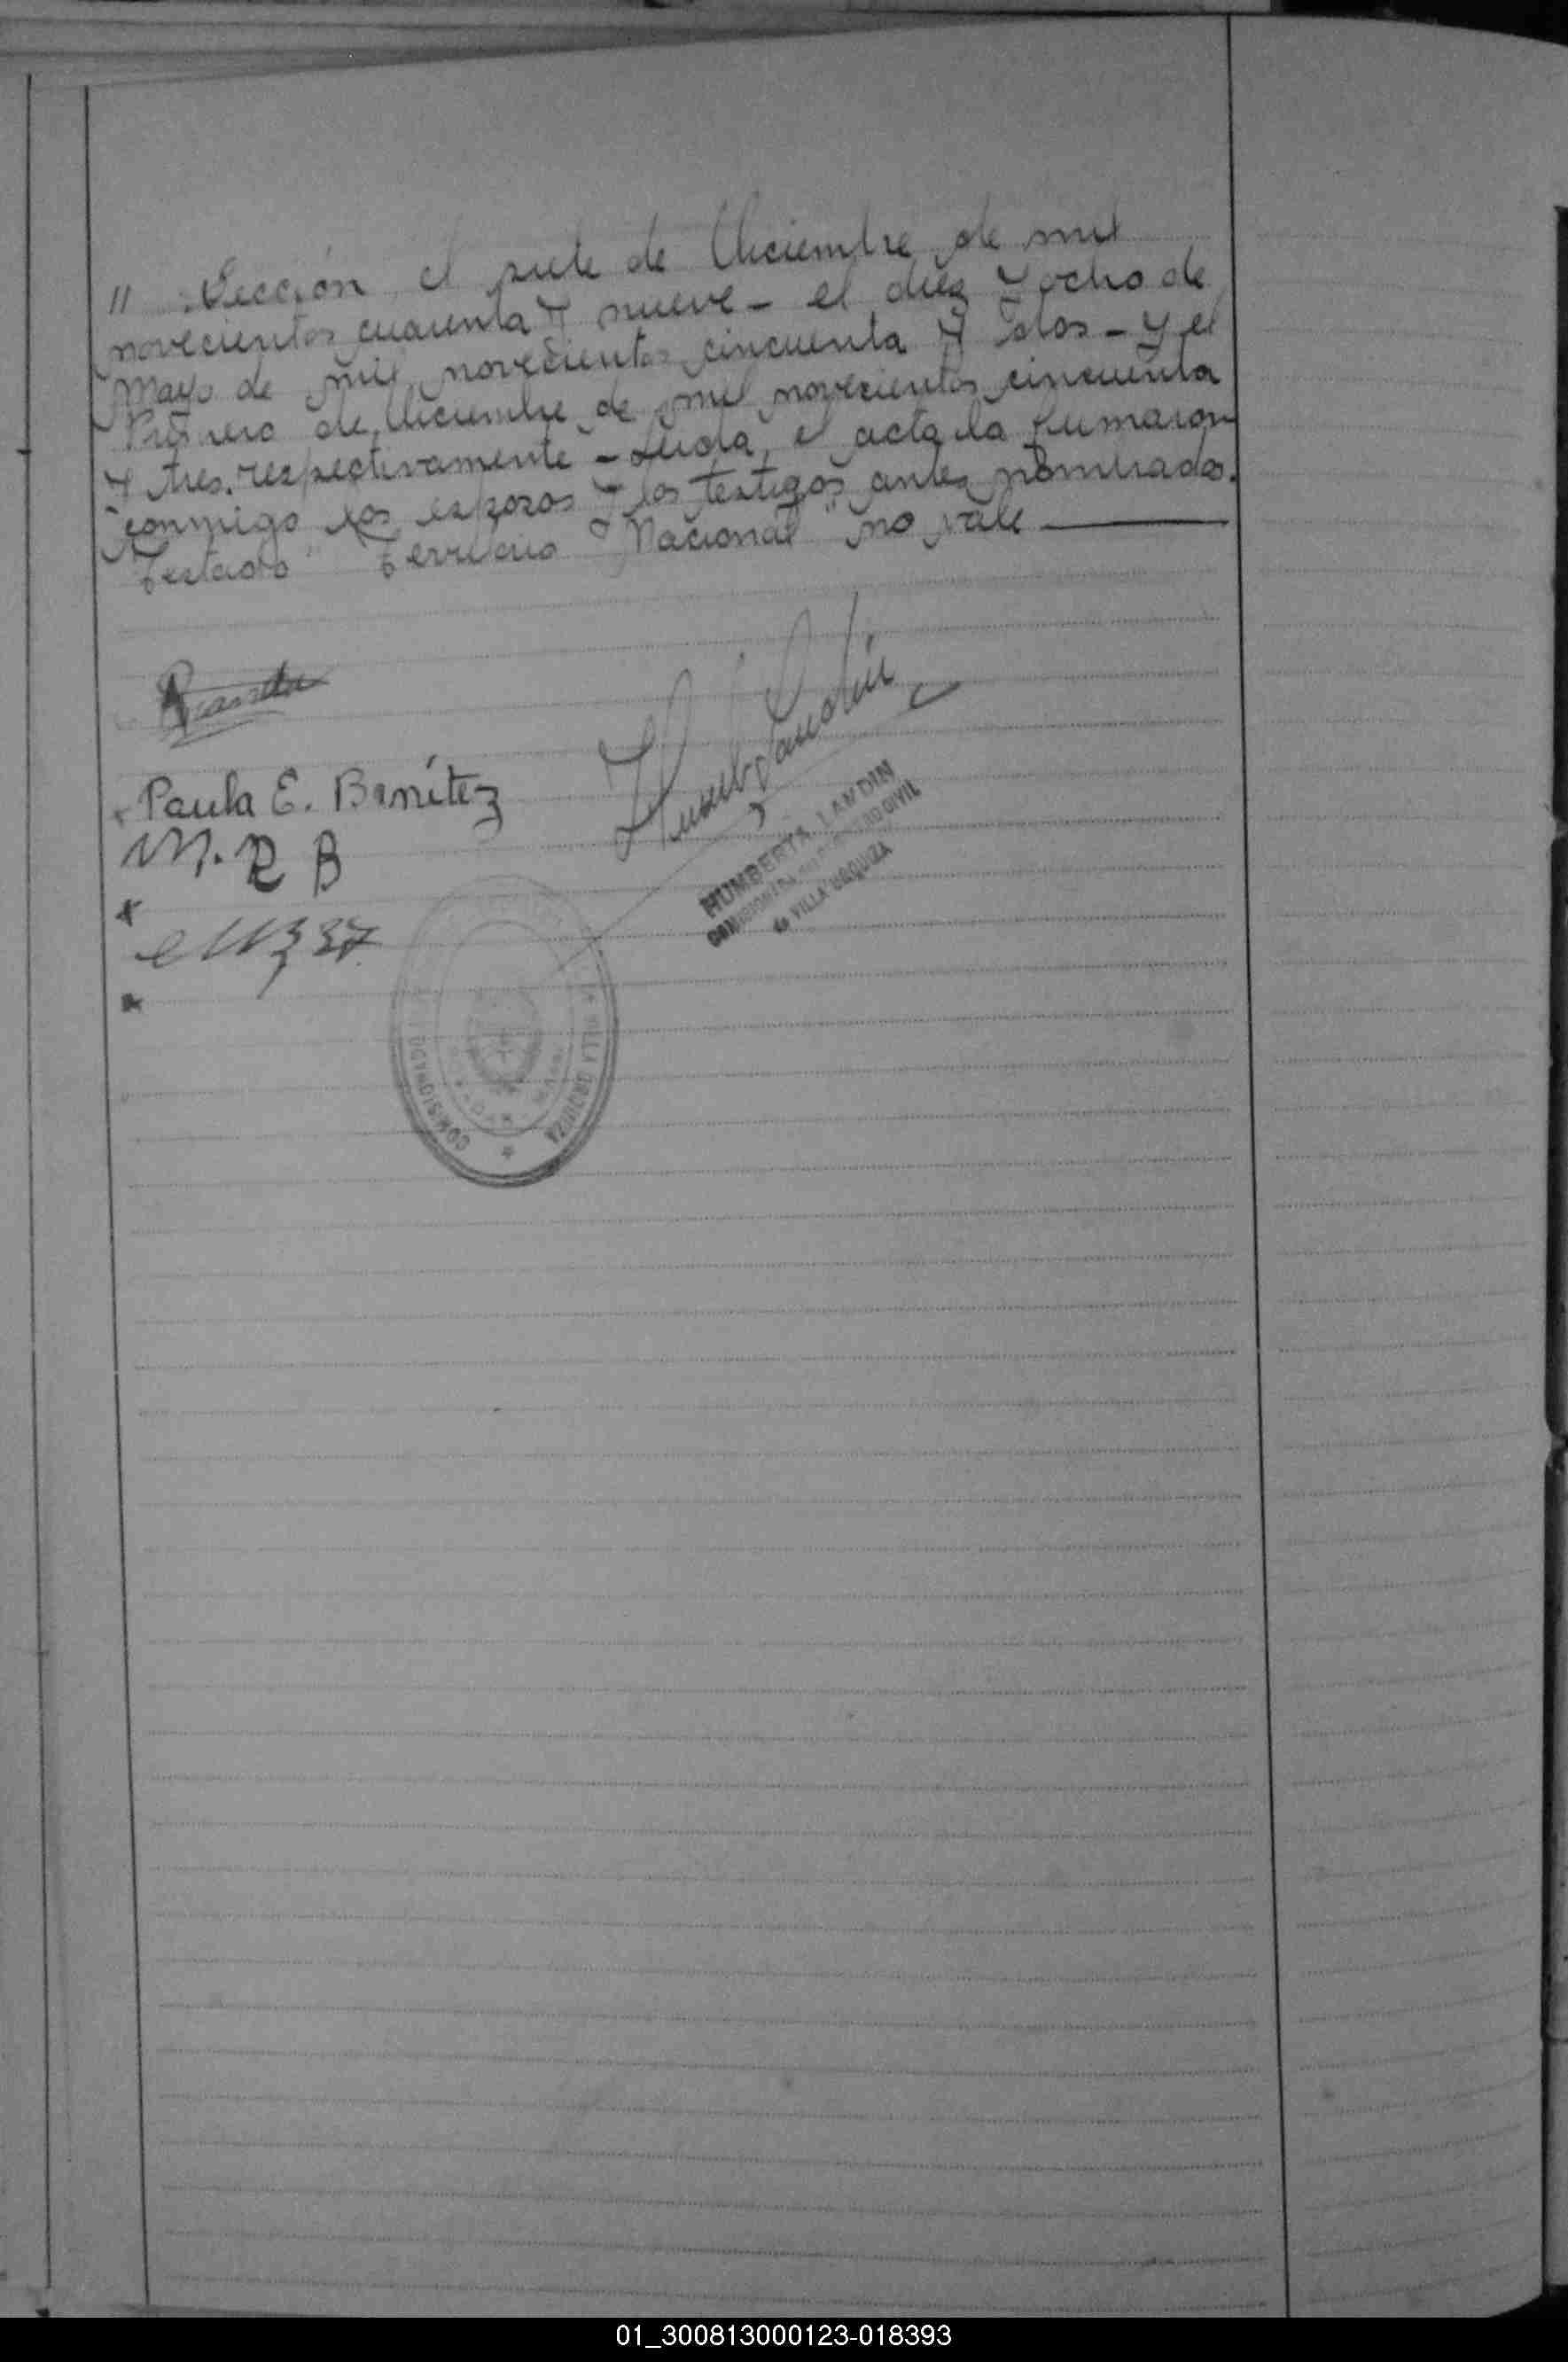 " Sección el siete de Diciembre de mil
novecientos cuarenta y nueve - el diez y ocho de
Mayo de mil novecientos cincuenta y dos - y el
Primero de Diciembre de mil novecientos cincuenta
y tres. respectivamente - Leida el acta la firmaron
conmigo los esposos y los testigos antes nombrados.
Testado " Territorio Nacional " no vale
Paula E. Benítez
M. R B
HUMBERTO LANDIN
REGISTRO CIVIL
de VILLA URQUIZA
COMISIONADO
VILLA URQUIZA
01_300813000123-018393